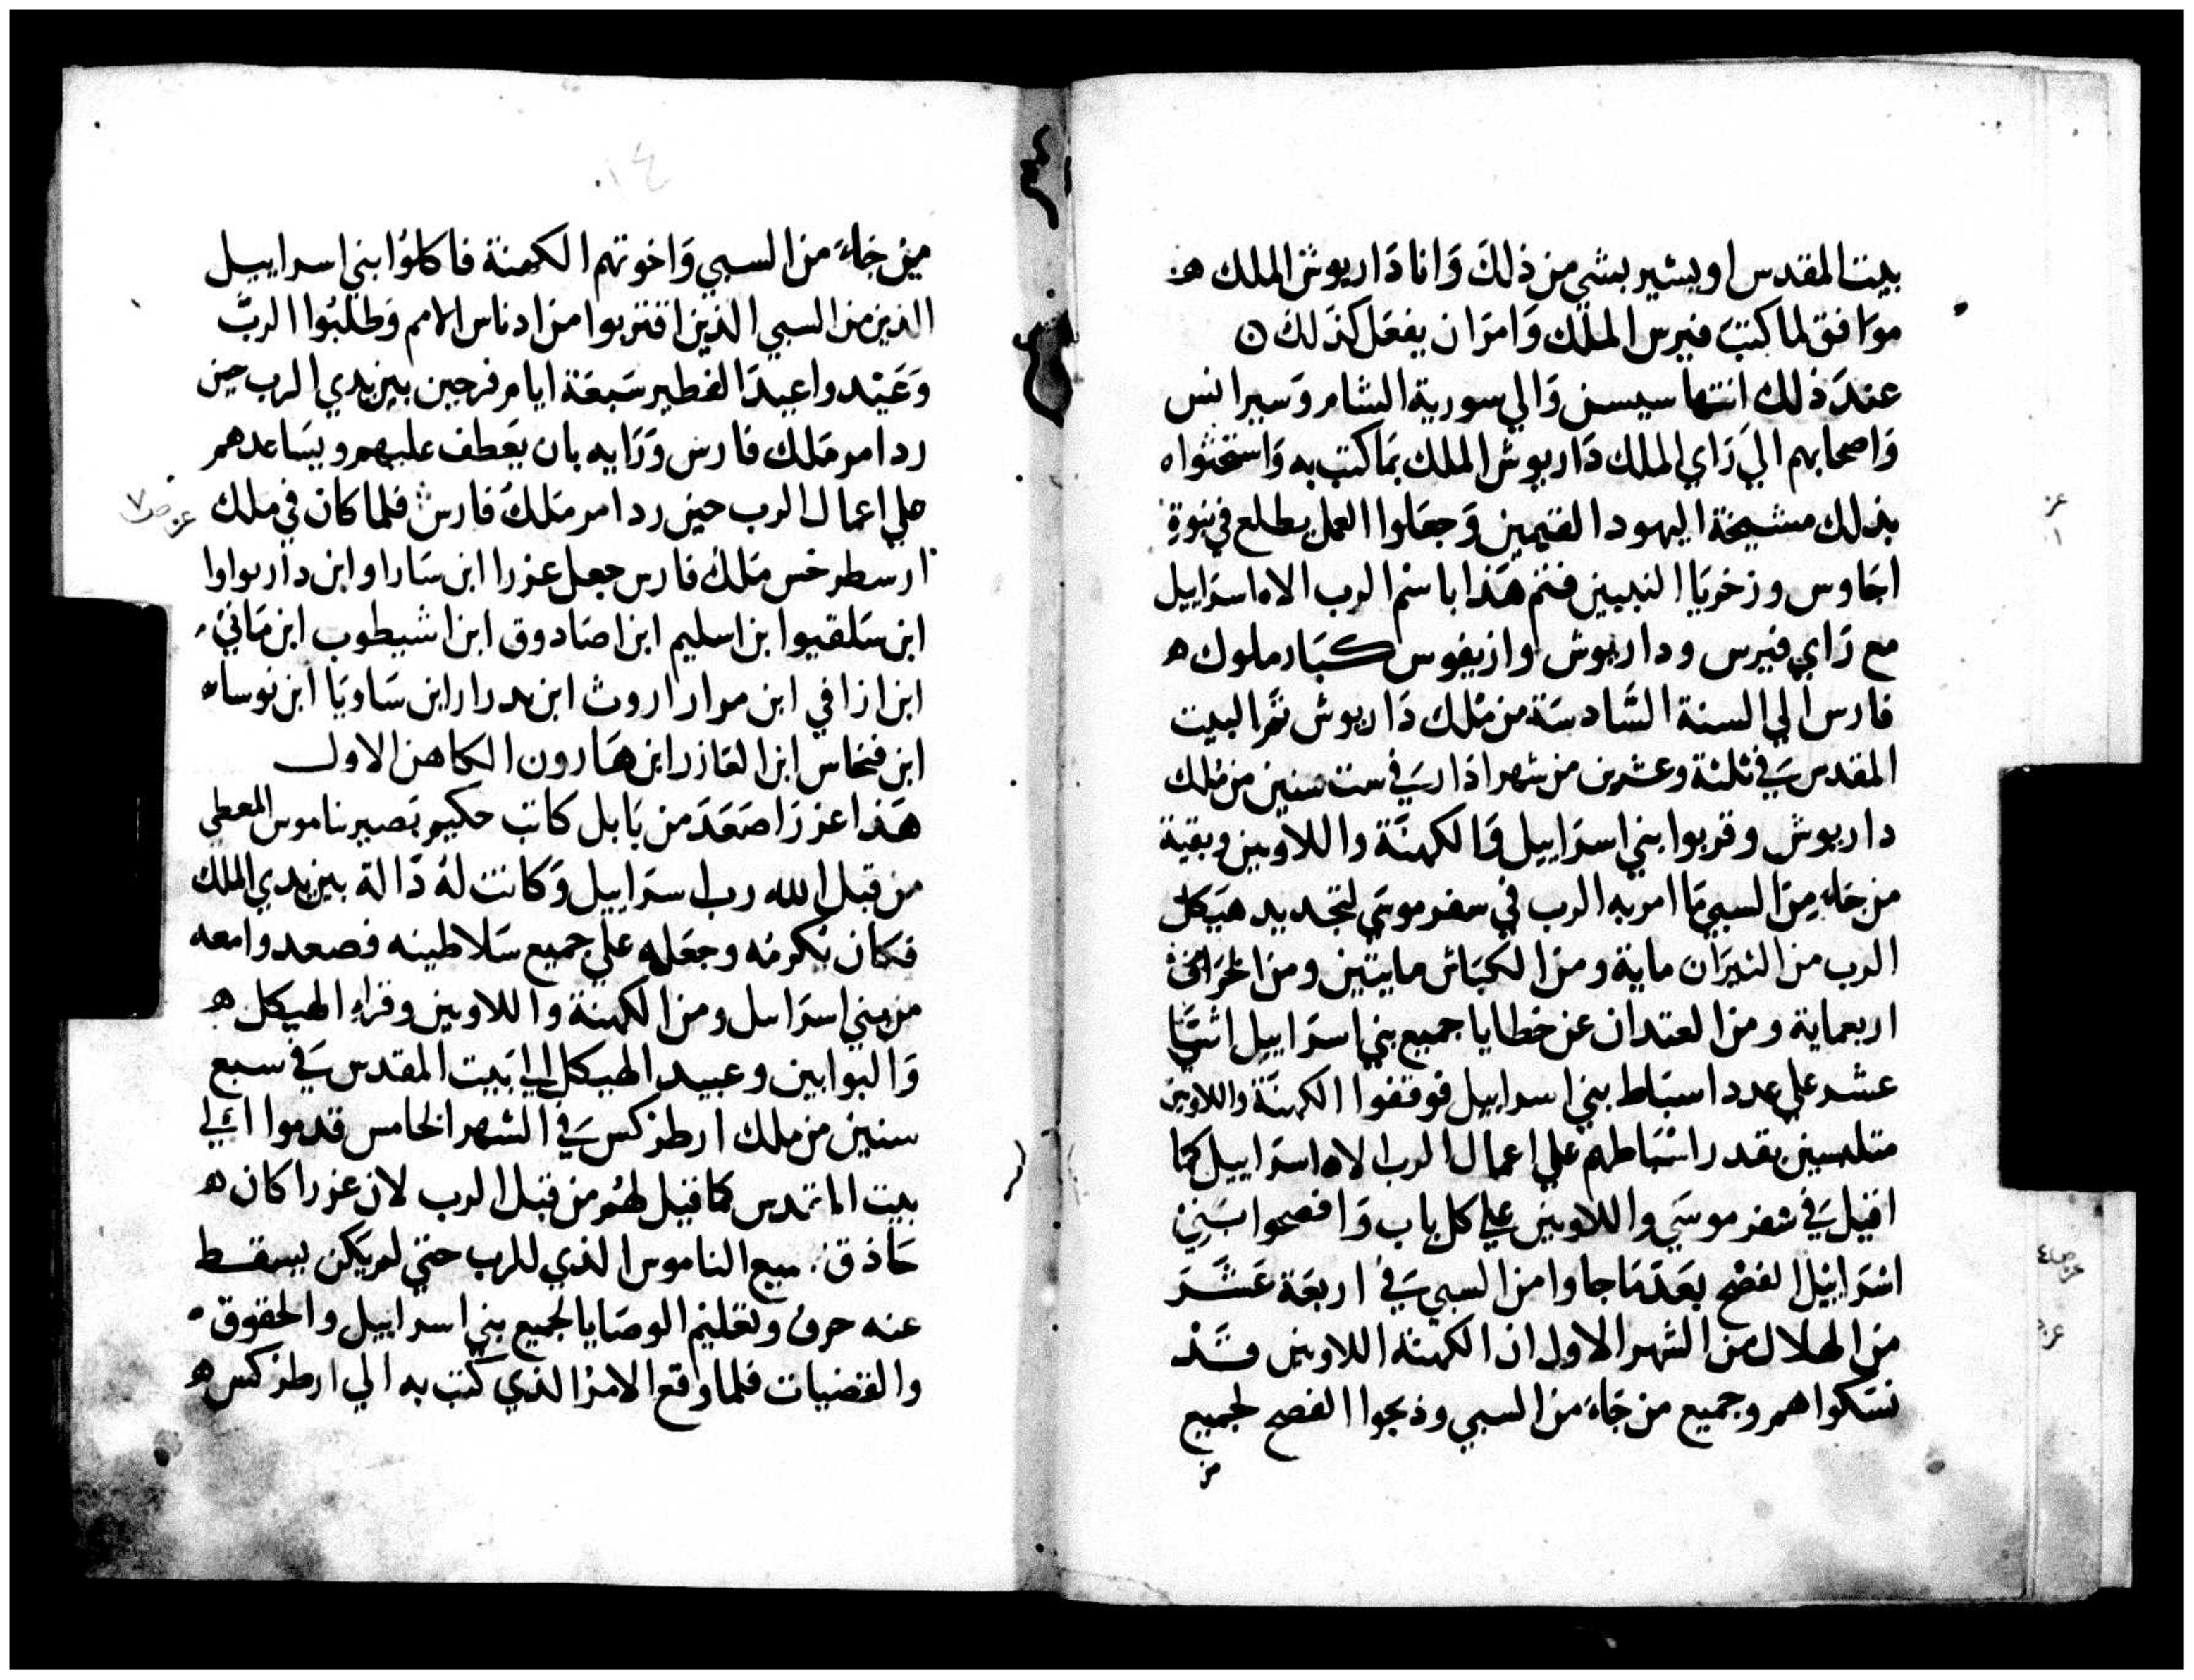 بيت المقدس او يشير بشي من ذلك وانا داريوش الملك ه
موافق لما كتب فيرس الملك وامر ان يفعل كذلك ن
عند ذلك انتها سيسن والي سورية الشام وسيرانس
واصحابهم الي راي الملك داريوش الملك بما كتب به واستحثواه
بذلك مشيخة اليهود القيمين وجعلوا العمل يطلع في نبوة
اجاوس وزخريا النبيين فتم هذا باسم الرب الاه اسراييل
مع راي فيرس وداريوش وازيفوس كبار ملوك ه
فارس الي السنة السادسة من ملك داريوش تم البيت
المقدس في ثلثة وعشرين من شهر ادار في ست سنين من ملك
داريوش وقربوا بني اسراييل والكهنة واللاويين وبقية
من جاء من السبي ما امر به الرب في سفر موسي لتجديد هيكل
الرب من الثيران ماية ومن الكباش مايتين ومن الخراف
اربعماية ومن العتدان عن خطايا جميع بني اسراييل اثنا
عشر علي عدد اسباط بني اسراييل فوقفوا الكهنة واللاوين
متلبسين بقدر اسباطهم علي اعمال الرب الاه اسراييل كما
اقيل في سفر موسي واللاويين علي كل باب وافصحوا بنين
اسراييل الفصح بعد ما جاوا من السبي في اربعة عشر
من الهلال من الشهر الاول ان الكهنة اللاويين قد
نسكوا هم وجميع من جاء من السبي وذبحوا الفصح لجميع
من
١٤
من جاء من السبي واخوتهم الكهنة فاكلوا بني اسراييل
الذين من السبي الذين اقتربوا من ادناس الامم وطلبوا الرب
وعيدوا عيد الفطير سبعة ايام فرحين بين يدي الرب حين
رد امر ملك فارس ورايه بان يعطف عليهم ويساعدهم
علي اعمال الرب حين رد امر ملك فارس فلما كان في ملك
ارسطرخس ملك فارس جعل عزرا ابن ساراو ابن داريواوا
ابن سلقيوا بن اسليم ابن اصادوق ابن اشيطوب ابن ماني
ابن ازافي ابن مرار اروث ابن بدرار ابن ساويا ابن نوساه
ابن فنحاس ابن العازر ابن هارون الكاهن الاول
هذا عزرا صعد من بابل كاتب حكيم بصير بناموس المعطي
من قبل الله رب اسراييل وكانت له دالة بين يدي الملك
فكان يكرمه وجعله علي جميع سلاطينه فصعدوا معه
من بني اسراييل ومن الكهنة واللاويين وقراء الهيكل ه
والبوابين وعبيد الهيكل الي بيت المقدس في سبع
سنين من ملك ارطزكس في الشهر الخامس قدموا الي
بيت المقدس كما قيل لهم من قبل الرب لان عزرا كان ه
حاذق جميع الناموس الذي للرب حتي لم يكن يسقط
عنه حرف وتعليم الوصايا لجميع بني اسراييل والحقوق
والقضيات فلما وقع الامر الذي كتب به الي ارطزكس ه